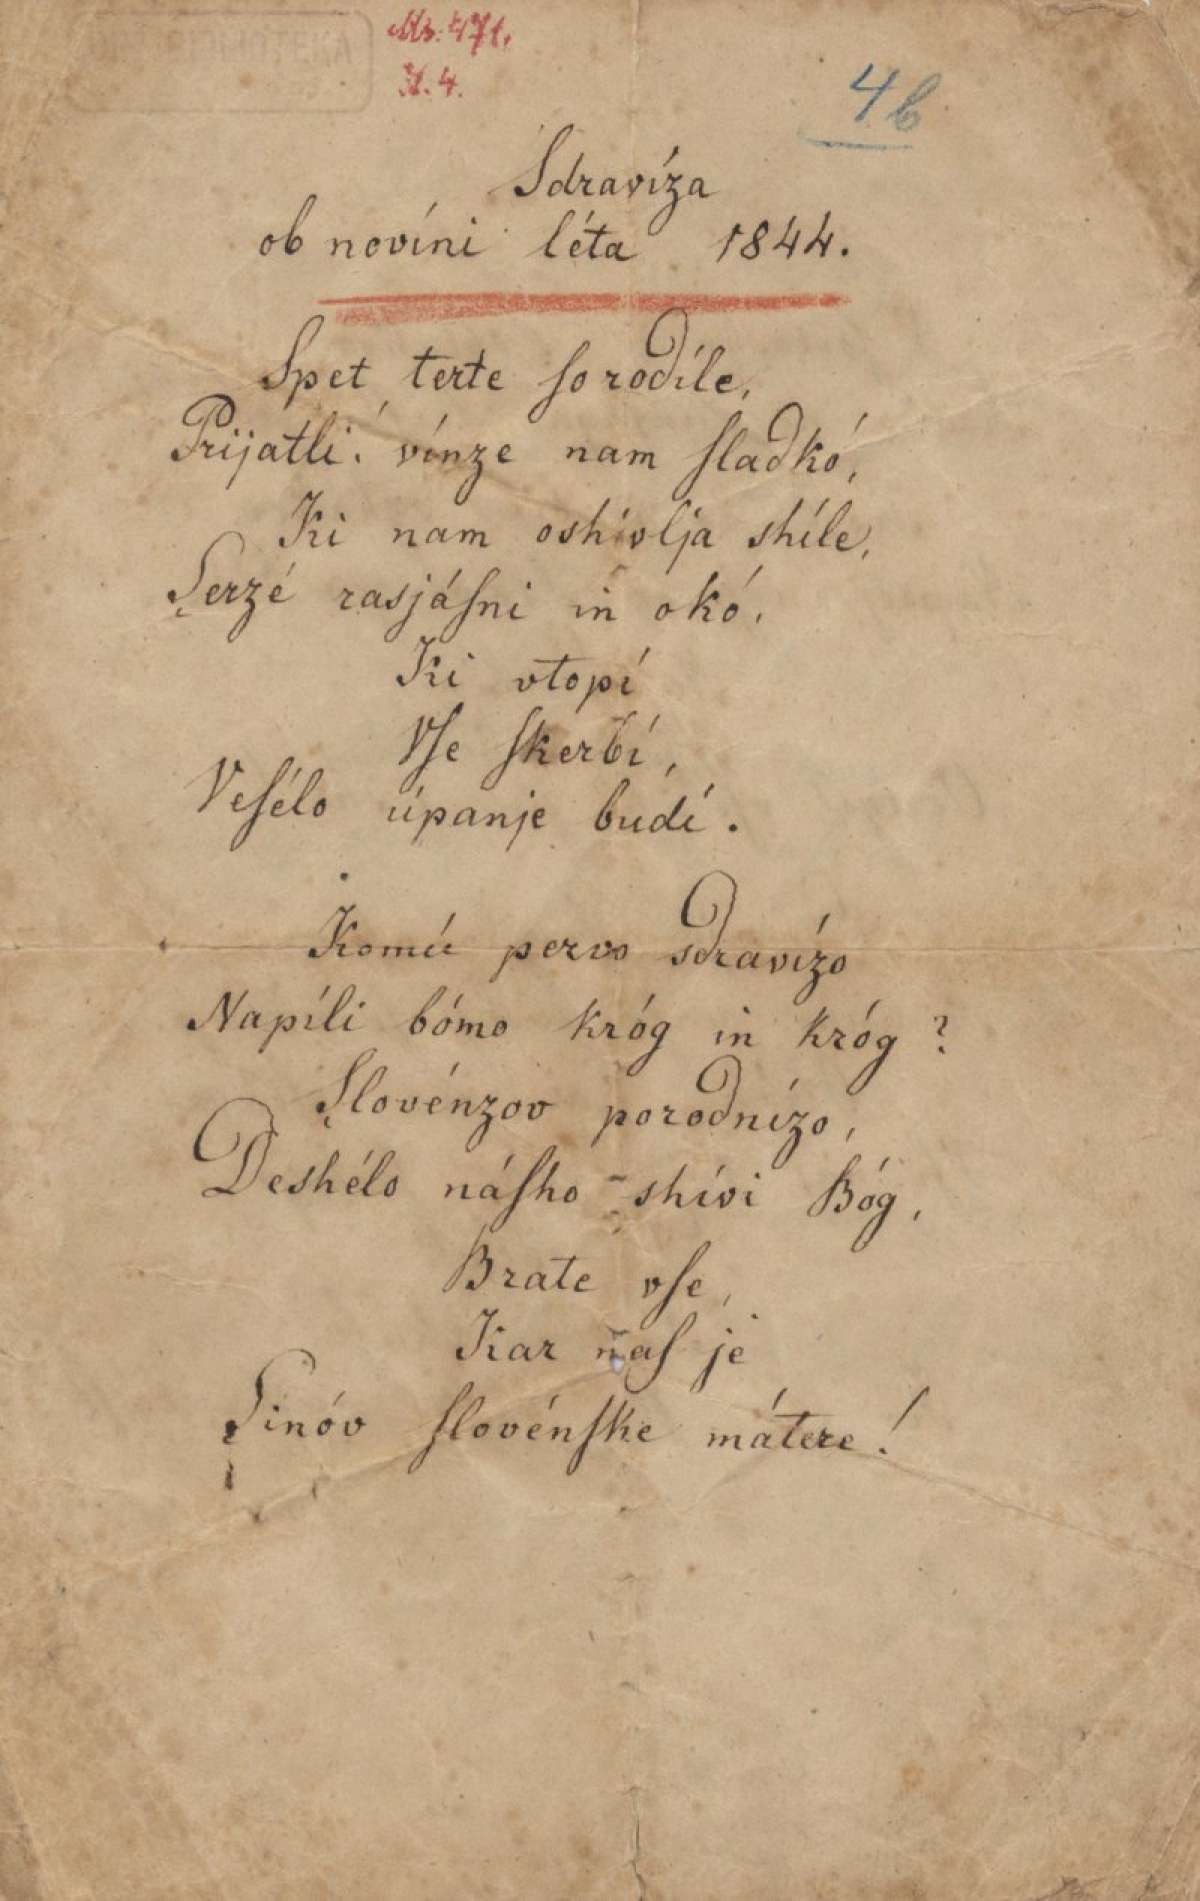 Ms. 471.
N. 4.
4b
Sdravíza
ob novíni léta 1844.
Spet terte ſo rodíle,
Prijatli! vínze nam ſladkó,
Ki nam oshivlja shíle,
Şerzé rasjáſni in okó,
Ki vtopí
Vſe ſkerbí,
Veſélo úpanje budí.
Komú pervo sdravízo
Napíli bómo króg in króg?
Şlovénzov porodnízo,
Deshélo náſho shívi Bóg,
Brate vſe,
Kar naſ je
Şinóv ſlovénſke mátere!